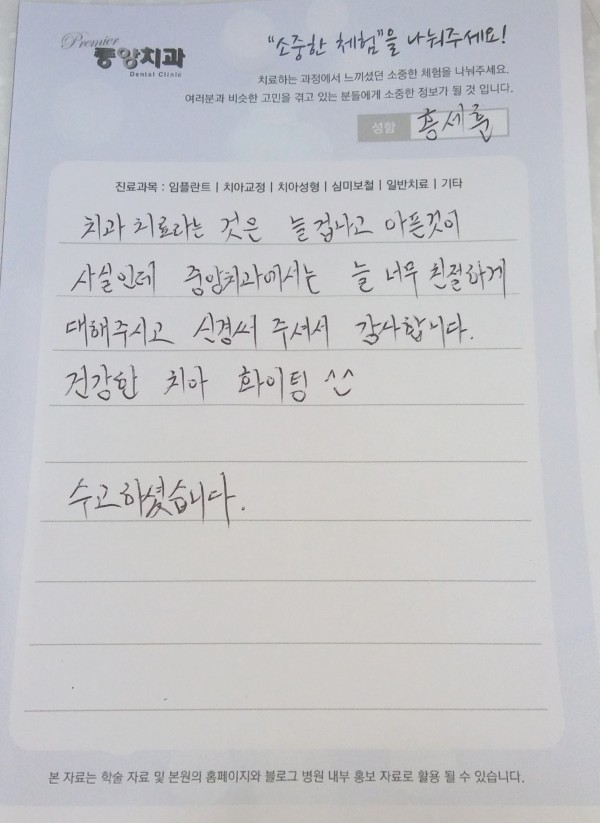 Premier
중앙치과
Dental Clinic
"소중한 체험"을 나눠주세요!
치료하는 과정에서 느끼셨던 소중한 체험을 나눠주세요.
여러분과 비슷한 고민을 겪고 있는 분들에게 소중한 정보가 될 것 입니다.
성함 홍세훈
진료과목 : 임플란트 | 치아교정 | 치아성형 | 심미보철 | 일반치료 | 기타
치과 치료라는 것은 늘 겁나고 아픈것이
사실인데 중앙치과에서는 늘 너무 친절하게
대해주시고 신경써 주셔서 감사합니다.
건강한 치아 화이팅 ^^
수고하셨습니다.
본 자료는 학술 자료 및 본원의 홈페이지와 블로그 병원 내부 홍보 자료로 활용 될 수 있습니다.